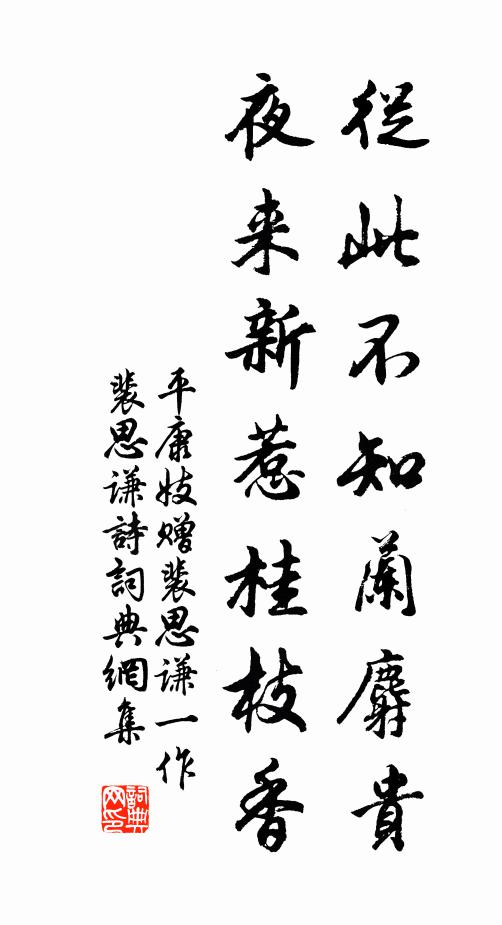 從此不知蘭麝貴
夜来新惹桂枝香
平康妓贈裴思謙一作
裴思謙詩詞典網集
詞典网印